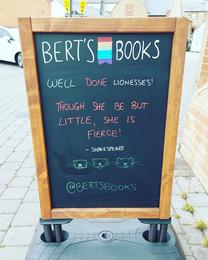 BERT'S BOOKS
WELL DONE LIONESSES!
THOUGH SHE BE BUT
LITTLE, SHE IS
FIERCE!
- SHAKESPEARE
@BERTSBOOKS